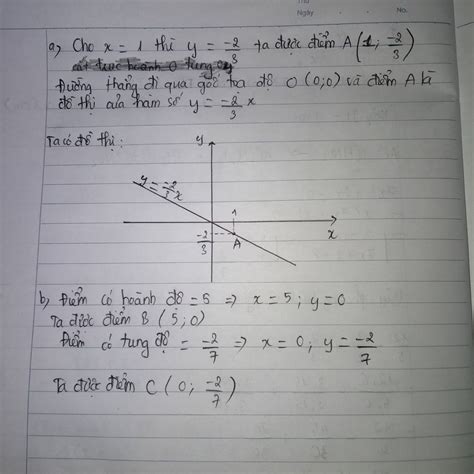 Thứ
Ngày No.
a, Cho x = 1 thì y = -2/3 ta được điểm A(1; -2/3)
cắt trục hoành 0 tung Oy
Đường thẳng đi qua gốc tọa độ O (0;0) và điểm A là
đồ thị của hàm số y = -2/3 x
Ta có đồ thị:
y
y = -2/3 x
1
-2/3
A
x
b, Điểm có hoành độ = 5 => x = 5; y = 0
Ta được điểm B (5; 0)
Điểm có tung độ = -2/7 => x = 0; y = -2/7
Ta được điểm C (0; -2/7)